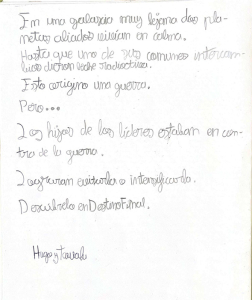 En una galaxia muy lejana dos pla-
netas aliados vivían en calma.
Hasta que uno de sus comunes intercam-
bios dieron leche radioactiva.
Esto origino una guerra.
Pero...
Los hijos de los líderes estaban en con-
tra de la guerra.
Lograran evitarla o intensificarla.
Descubrelo en Destino Final.
Hugo y